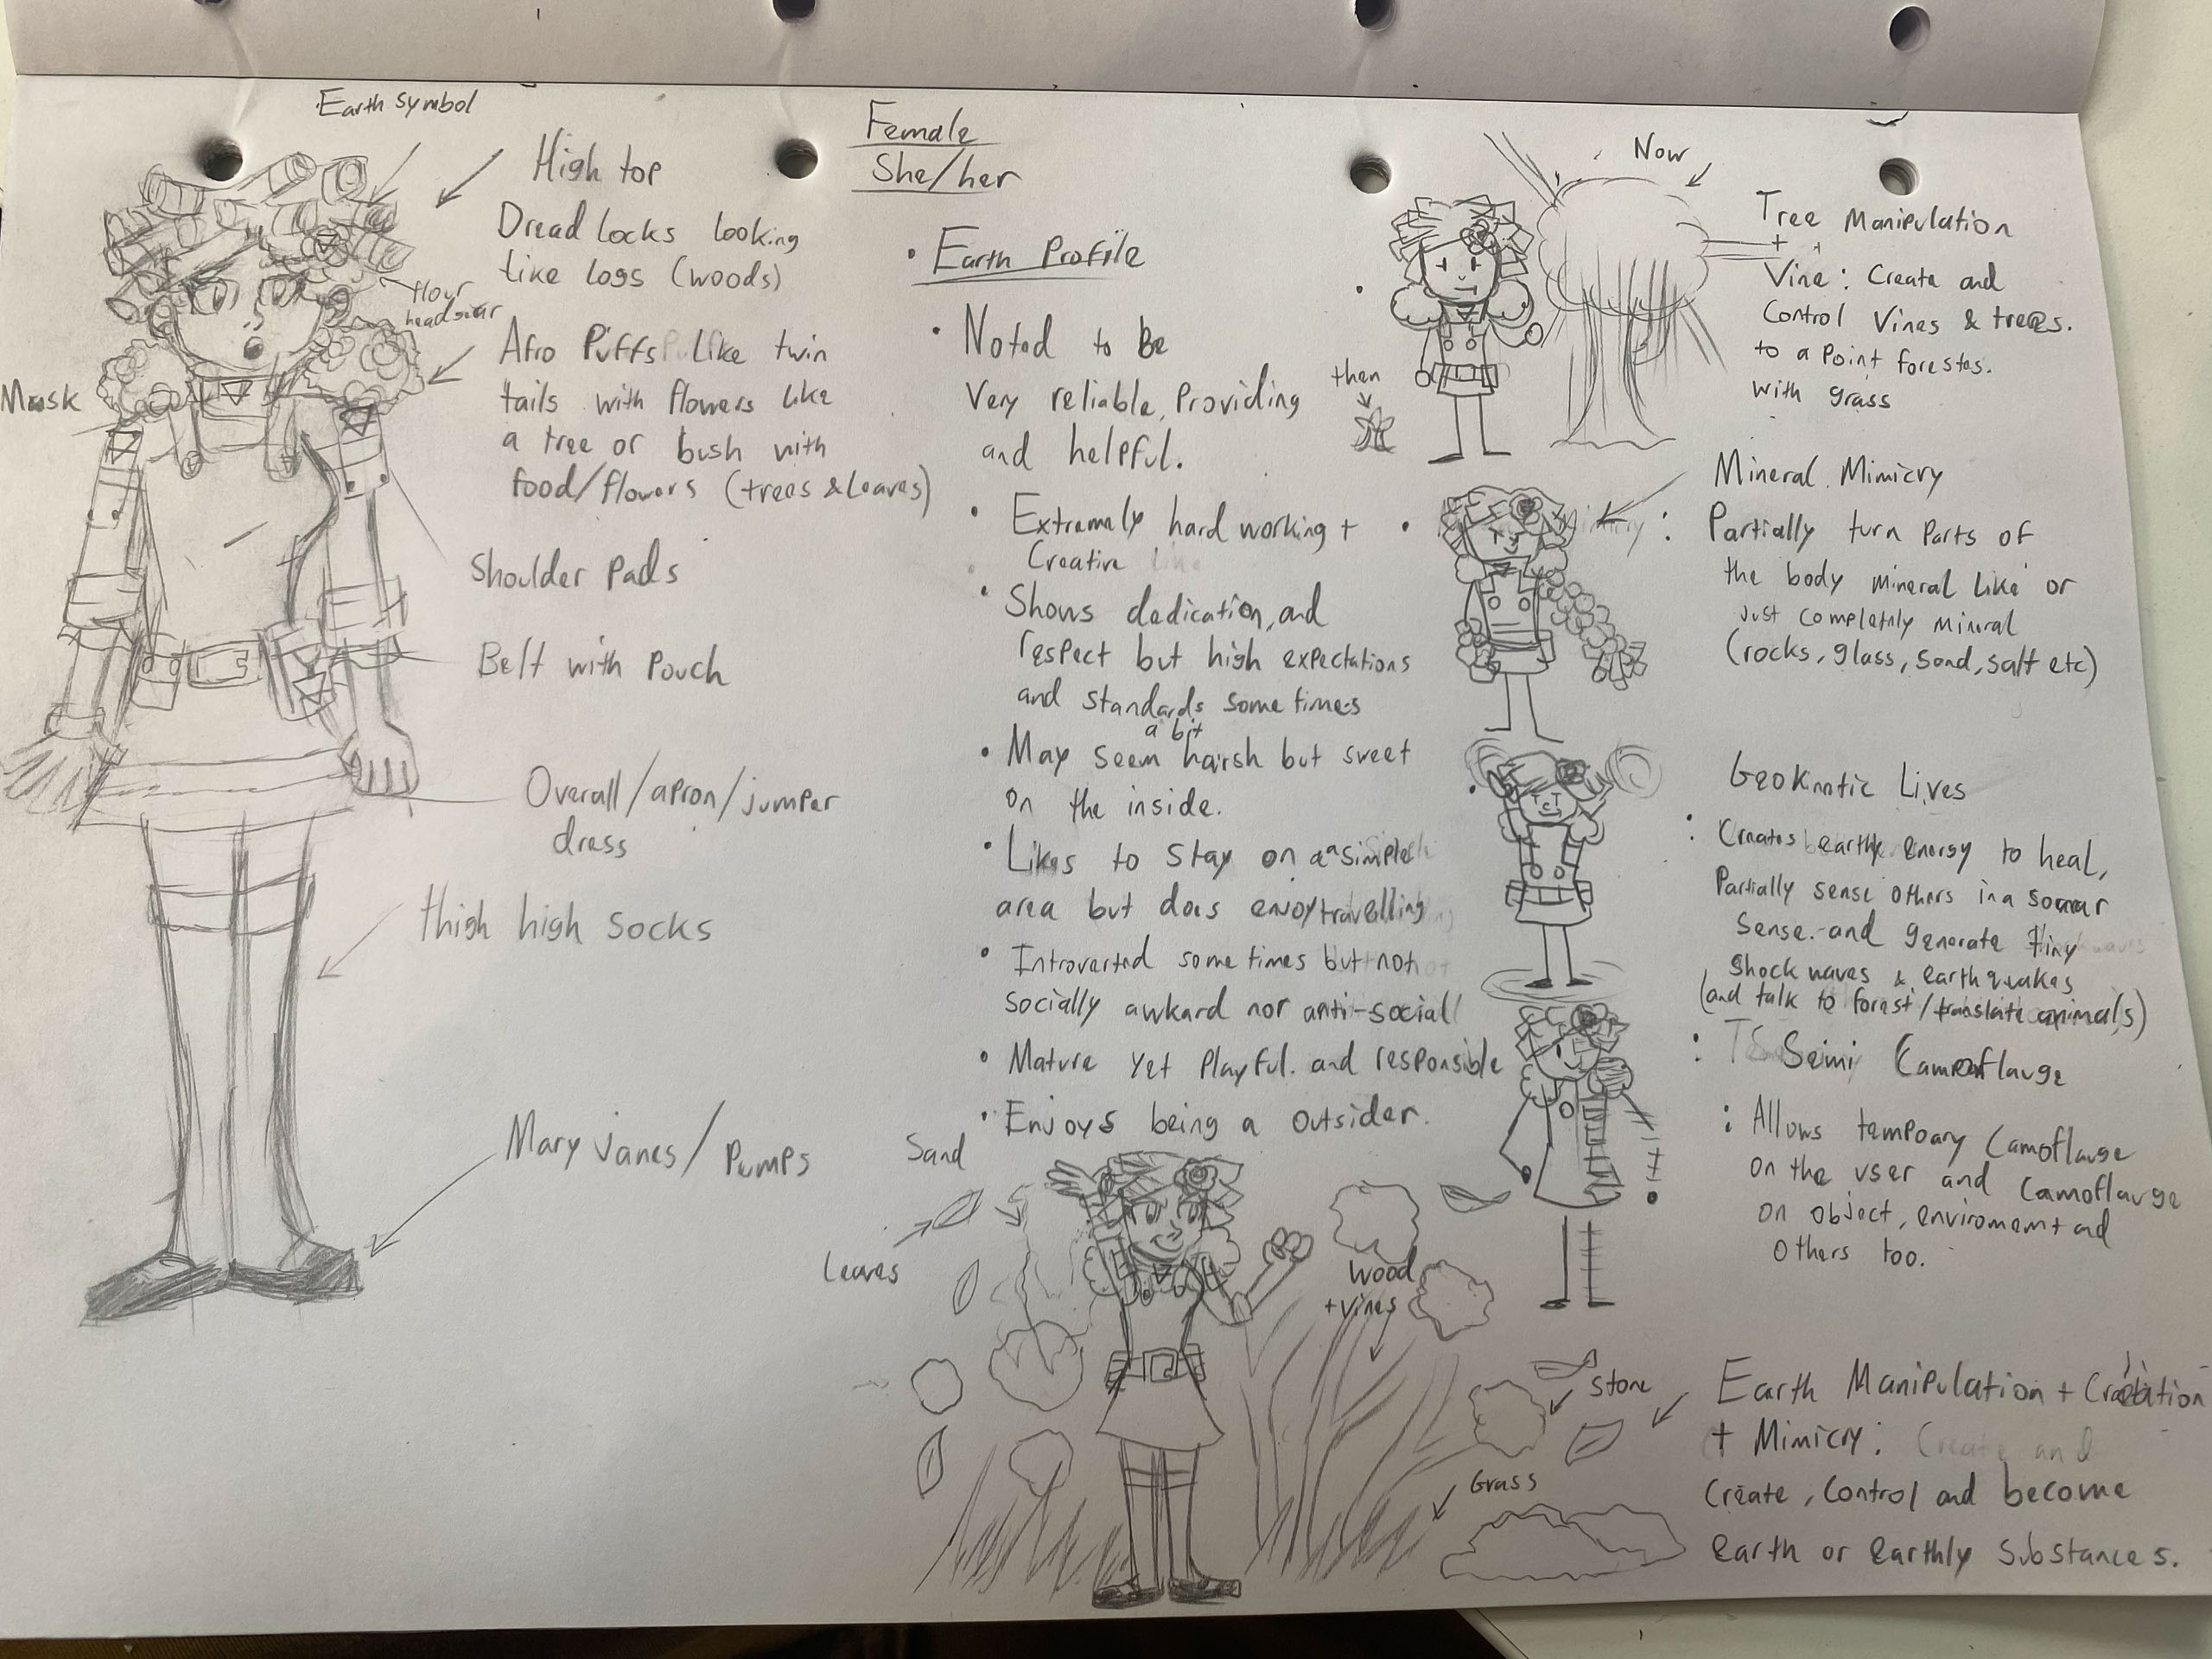 Earth symbol
High top
Dread locks looking
like logs (woods)
flour
headgear
Afro Puffs Like twin
tails with flowers like
a tree or bush with
food/flowers (trees & Leaves)
Mask
Shoulder Pads
Belt with Pouch
Overall/apron/jumper
dress
thigh high socks
Mary Janes/Pumps
Female
She/her
• Earth Profile
• Noted to be
Very reliable, Providing
and helpful.
• Extremely hard working +
Creative
• Shows dedication, and
respect but high expectations
and standards sometimes
a bit
• May seem harsh but sweet
on the inside.
• Likes to stay on a simple
area but does enjoy travelling
• Introverted some times but not
socially awkard nor anti-social
• Mature yet Playful. and responsible
• Enjoys being a outsider.
Now
then
Tree Manipulation
+
Vine: Create and
Control Vines & trees.
to a Point forestes.
with grass
Mineral Mimicry
: Partially turn Parts of
the body mineral like or
just completnly mineral
(rocks, glass, sand, salt etc)
Geokinetic Lives
: Creates earthly energy to heal,
Partially sense others in a sonar
sense. and generate tiny
shock waves & earthquakes
(and talk to forest/translate animals)
: Seimi Camoflauge
: Allows tempoary Camoflauge
on the user and Camoflauge
on object, enviroment and
others too.
Sand
Leaves
Wood
+ vines
Stone
Grass
Earth Manipulation + Creation
+ Mimicry:
Create, Control and become
earth or earthly substances.